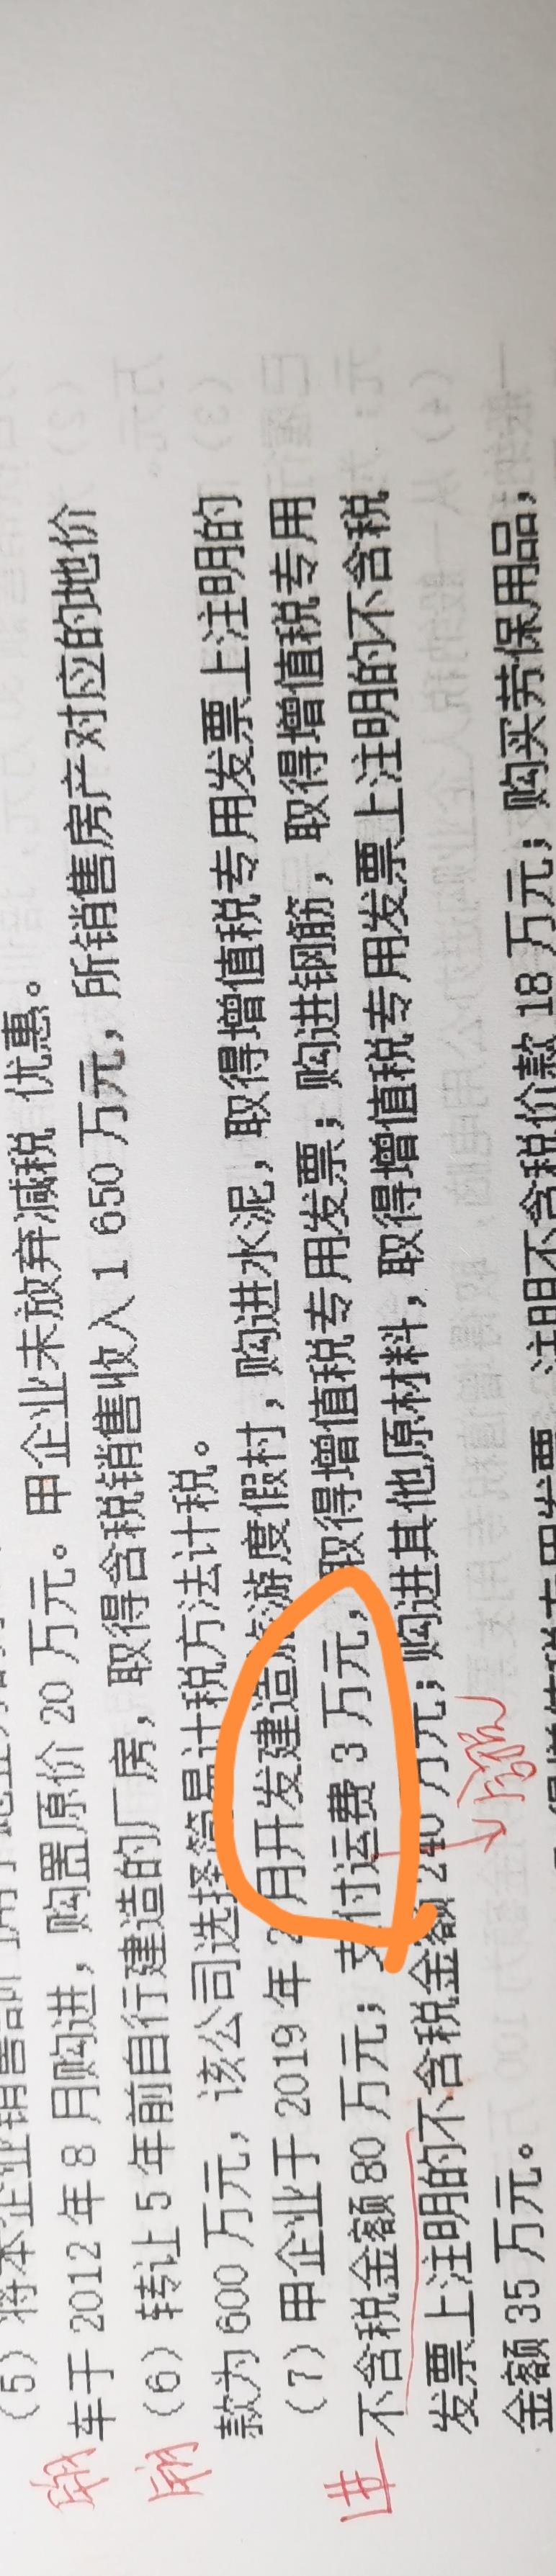 （5）将本企业销售部
车于 2012 年 8 月购进，购置原价 20 万元。甲企业未放弃减税 优惠。
（6）转让 5 年前自行建造的厂房，取得含税销售收入 1 650 万元，所销售房产对应的地价
款为 600 万元，该公司选择简易计税方法计税。
（7）甲企业于 2019 年 2 月开发建造旅游度假村，购进水泥，取得增值税专用发票上注明的
不含税金额 80 万元；支付运费 3 万元，取得增值税专用发票；购进钢筋，取得增值税专用
发票上注明的不含税金额 240 万元；购进其他原材料，取得增值税专用发票上注明的不含税
金额 35 万元。
注明不含税价款 18 万元；购买劳保用品，
进